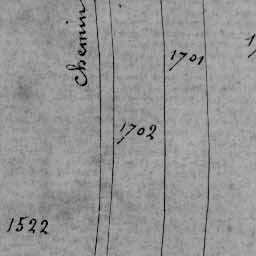 Chemin
1701
1702
1522